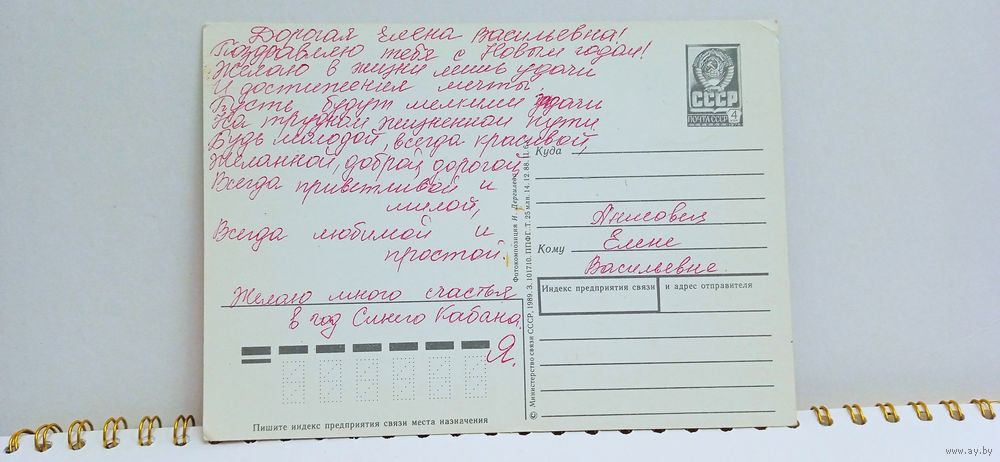 Дорогая Елена Васильевна!
Поздравляю тебя с Новым годом!
Желаю в жизни лишь удачи
И достижения мечты,
Пусть будут мелкими задачи
На трудном жизненном пути
Будь молодой, всегда красивой,
Желанной, доброй, дорогой,
Всегда приветливой и
милой,
Всегда любимой и
простой.
Желаю много счастья
в год Синего Кабана.
Я.
СССР
ПОЧТА СССР 4
Куда
Анисовец
Кому Елене
Васильевне
Индекс предприятия связи и адрес отправителя
Пишите индекс предприятия связи места назначения
© Министерство связи СССР, 1989. З. 101710. ППФГ. Т. 25 млн. 14. 12. 88.
Фотокомпозиция И. Дергилева
www.ay.by